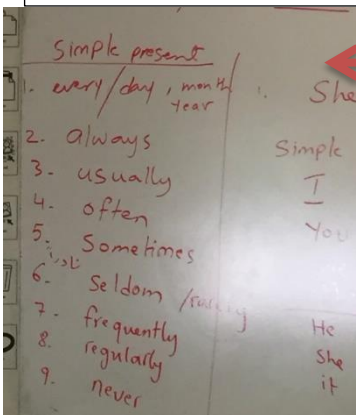 Simple present
1. every/day, month
year
2. always
3. usually
4. often
5. Sometimes
6. Seldom /
7. frequently
8. regularly
9. never
She
Simple
I
You
He
She
it